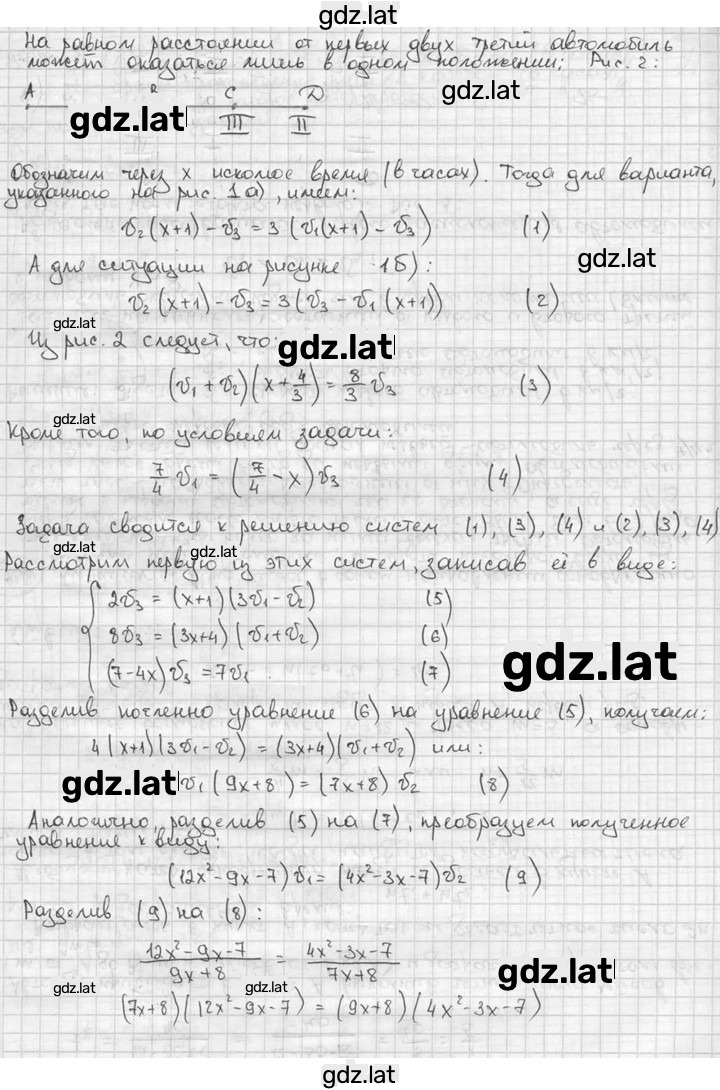 gdz.lat
На равном расстоянии от первых двух третий автомобиль
может оказаться лишь в одном положении; Рис. 2:
A B C D
gdz.lat
gdz.lat
III II
Обозначим через x искомое время (в часах). Тогда для варианта,
указанного на рис. 1а), имеем:
v₂(x+1) - v₃ = 3(v₁(x+1) - v₃) (1)
А для ситуации на рисунке 1б):
gdz.lat
v₂(x+1) - v₃ = 3(v₃ - v₁(x+1)) (2)
gdz.lat
Из рис. 2 следует, что:
gdz.lat
(v₁ + v₂)(x + 4/3) = 8/3 v₃ (3)
gdz.lat
Кроме того, по условиям задачи:
7/4 v₁ = (7/4 - x)v₃ (4)
Задача сводится к решению систем (1), (3), (4) и (2), (3), (4)
gdz.lat gdz.lat
Рассмотрим первую из этих систем, записав её в виде:
2v₃ = (x+1)(3v₁ - v₂) (5)
8v₃ = (3x+4)(v₁+v₂) (6)
gdz.lat
(7-4x)v₃ = 7v₁. (7)
Разделив почленно уравнение (6) на уравнение (5), получаем:
4(x+1)(3v₁ - v₂) = (3x+4)(v₁+v₂) или:
gdz.lat
v₁(9x+8) = (7x+8)v₂ (8)
Аналогично, разделив (5) на (7), преобразуем полученное
gdz.lat
уравнение к виду:
(12x² - 9x - 7)v₁ = (4x² - 3x - 7)v₂ (9)
Разделив (9) на (8):
(12x² - 9x - 7)/(9x+8) = (4x² - 3x - 7)/(7x+8)
gdz.lat
gdz.lat
(7x+8)(12x² - 9x - 7) = (9x+8)(4x² - 3x - 7)
gdz.lat